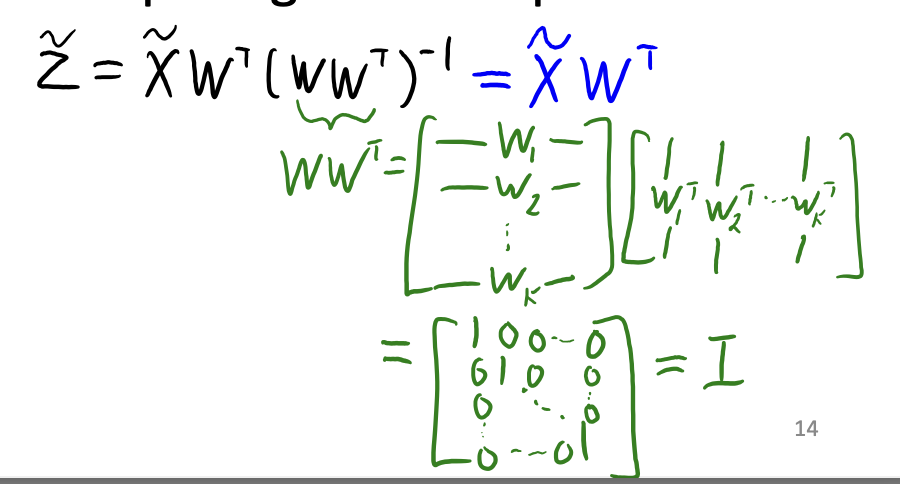 Z̃ = X̃ Wᵀ (W Wᵀ)⁻¹ = X̃ Wᵀ
W Wᵀ = [ — W₁ — ] [ | | | ]
— W₂ — W₁ᵀ W₂ᵀ ... Wₖᵀ
⋮ | | |
— Wₖ —
= [ 1 0 0 ... 0 ] = I
0 1 0 0
0 ... 0
0 ... 0 1
14